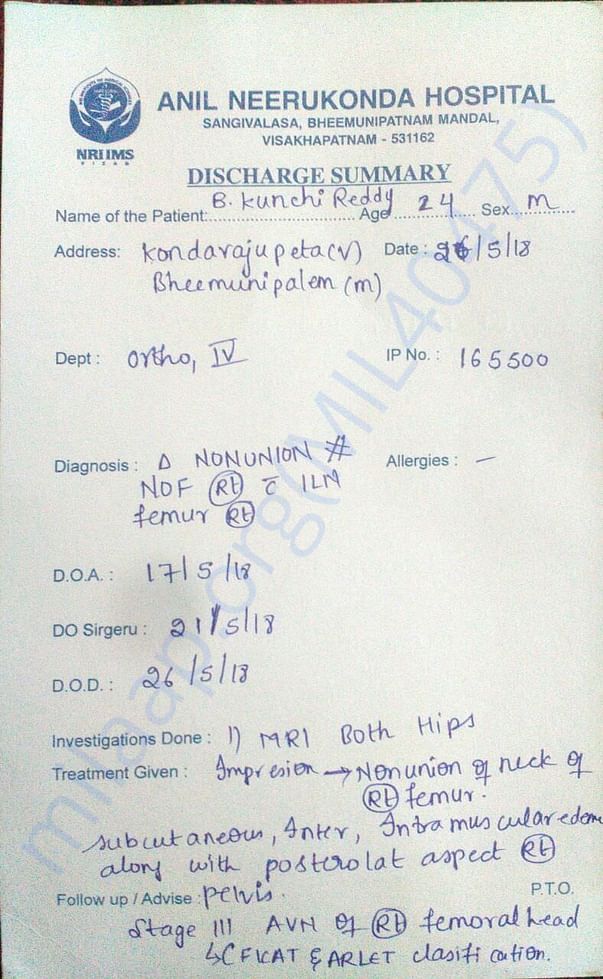 ANIL NEERUKONDA HOSPITAL
SANGIVALASA, BHEEMUNIPATNAM MANDAL,
VISAKHAPATNAM - 531162
NRIIMS
VIZAG
DISCHARGE SUMMARY
Name of the Patient: B. Kunchi Reddy Age 24 Sex M
Address: Kondarajupeta(v) Date : 26/5/18
Bheemunipalem (m)
Dept : Ortho, IV IP No. : 165500
Diagnosis : Δ NONUNION # Allergies : –
NOF (Rt) c̄ ILN
femur (Rt)
D.O.A. : 17/5/18
DO Sirgeru : 21/5/18
D.O.D. : 26/5/18
Investigations Done : 1) MRI Both Hips
Treatment Given : Impresion → Nonunion of neck of
(Rt) femur.
subcutaneous, Inter, Intramuscular edema
along with posterolat aspect (Rt)
Follow up / Advise : pelvis. P.T.O.
Stage III AVN of (Rt) femoral head
↳ (FICAT & ARLET clasification.
milaap.org(MIL40475)